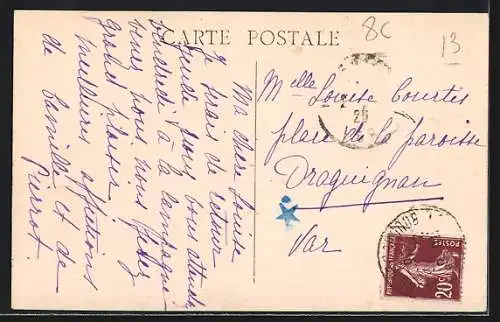 CARTE POSTALE
8C
13
Ma chère Louise
Je serai de retour
Jeudi nous vous attendons
vendredi à la campagne
venez vous nous ferez
grand plaisir
meilleures affections
de famille et de
Pierrot
Melle Louise Courtès
place de la paroisse
Draguignan
Var
26
POSTES
20c